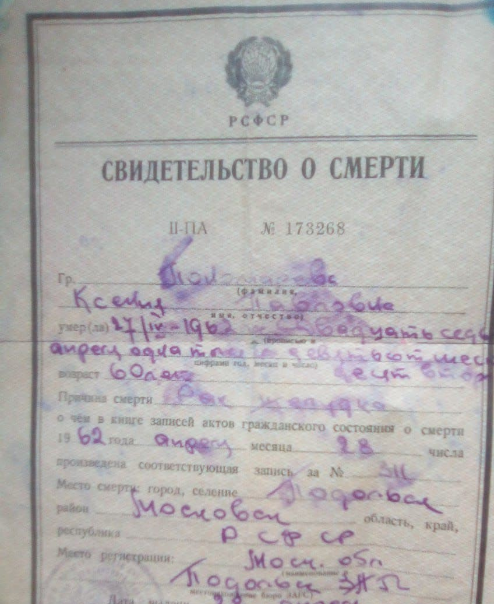 РСФСР
СВИДЕТЕЛЬСТВО О СМЕРТИ
II-ПА № 173268
Гр.
(фамилия,
Ксения Павловна
имя, отчество)
умер(ла) 27/IV-1962 двадцать седь
апреля одна тысяча девятьсот шесть
цифрами год, месяц и число)
десят втор
возраст 60 лет
Причина смерти Рак желудка
о чём в книге записей актов гражданского состояния о смерти
1962 года апреля месяца 28 числа
произведена соответствующая запись за №
Место смерти: город, селение Подольск
район Московск область, край,
республика РСФСР
Место регистрации: Моск. обл
(наименование
Подольск
бюро ЗАГС)
Дата